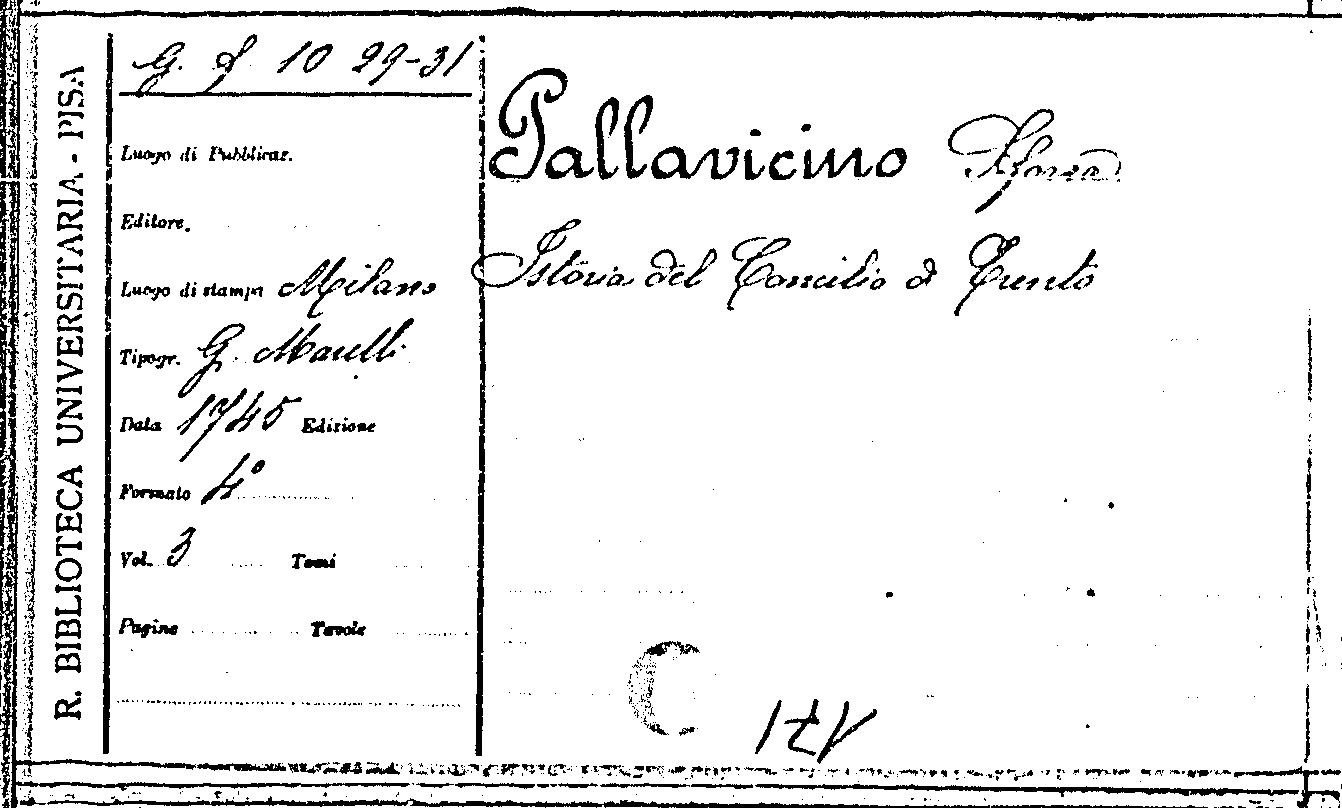 R. BIBLIOTECA UNIVERSITARIA - PISA
G. f 10 29-31
Luogo di Pubblicaz.
Editore.
Luogo di stampa Milano
Tipogr. G. Marelli
Data 1745 Edizione
Formato 4°
Vol. 3 Tomi
Pagine Tavole
Pallavicino Sforza
Istoria del Concilio di Trento